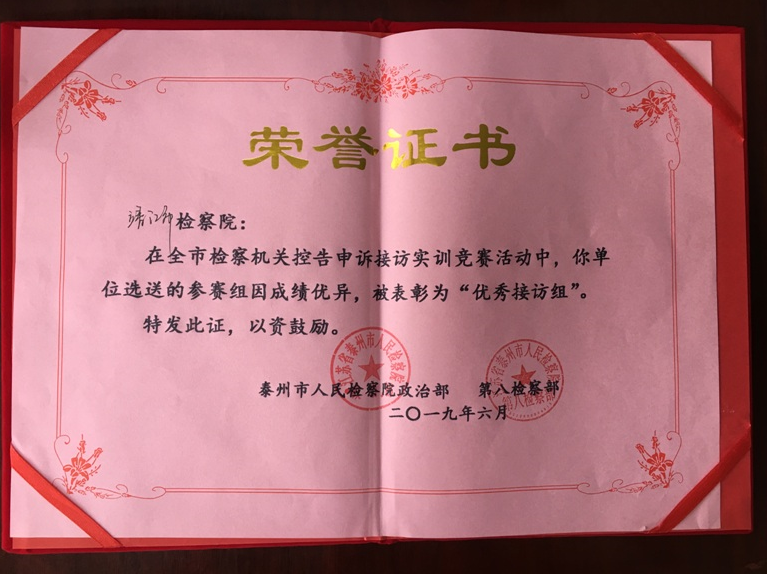 荣誉证书
靖江市检察院：
在全市检察机关控告申诉接访实训竞赛活动中，你单
位选送的参赛组因成绩优异，被表彰为“优秀接访组”。
特发此证，以资鼓励。
江苏省泰州市人民检察院
江苏省泰州市人民检察院
第八检察部
泰州市人民检察院政治部 第八检察部
二〇一九年六月